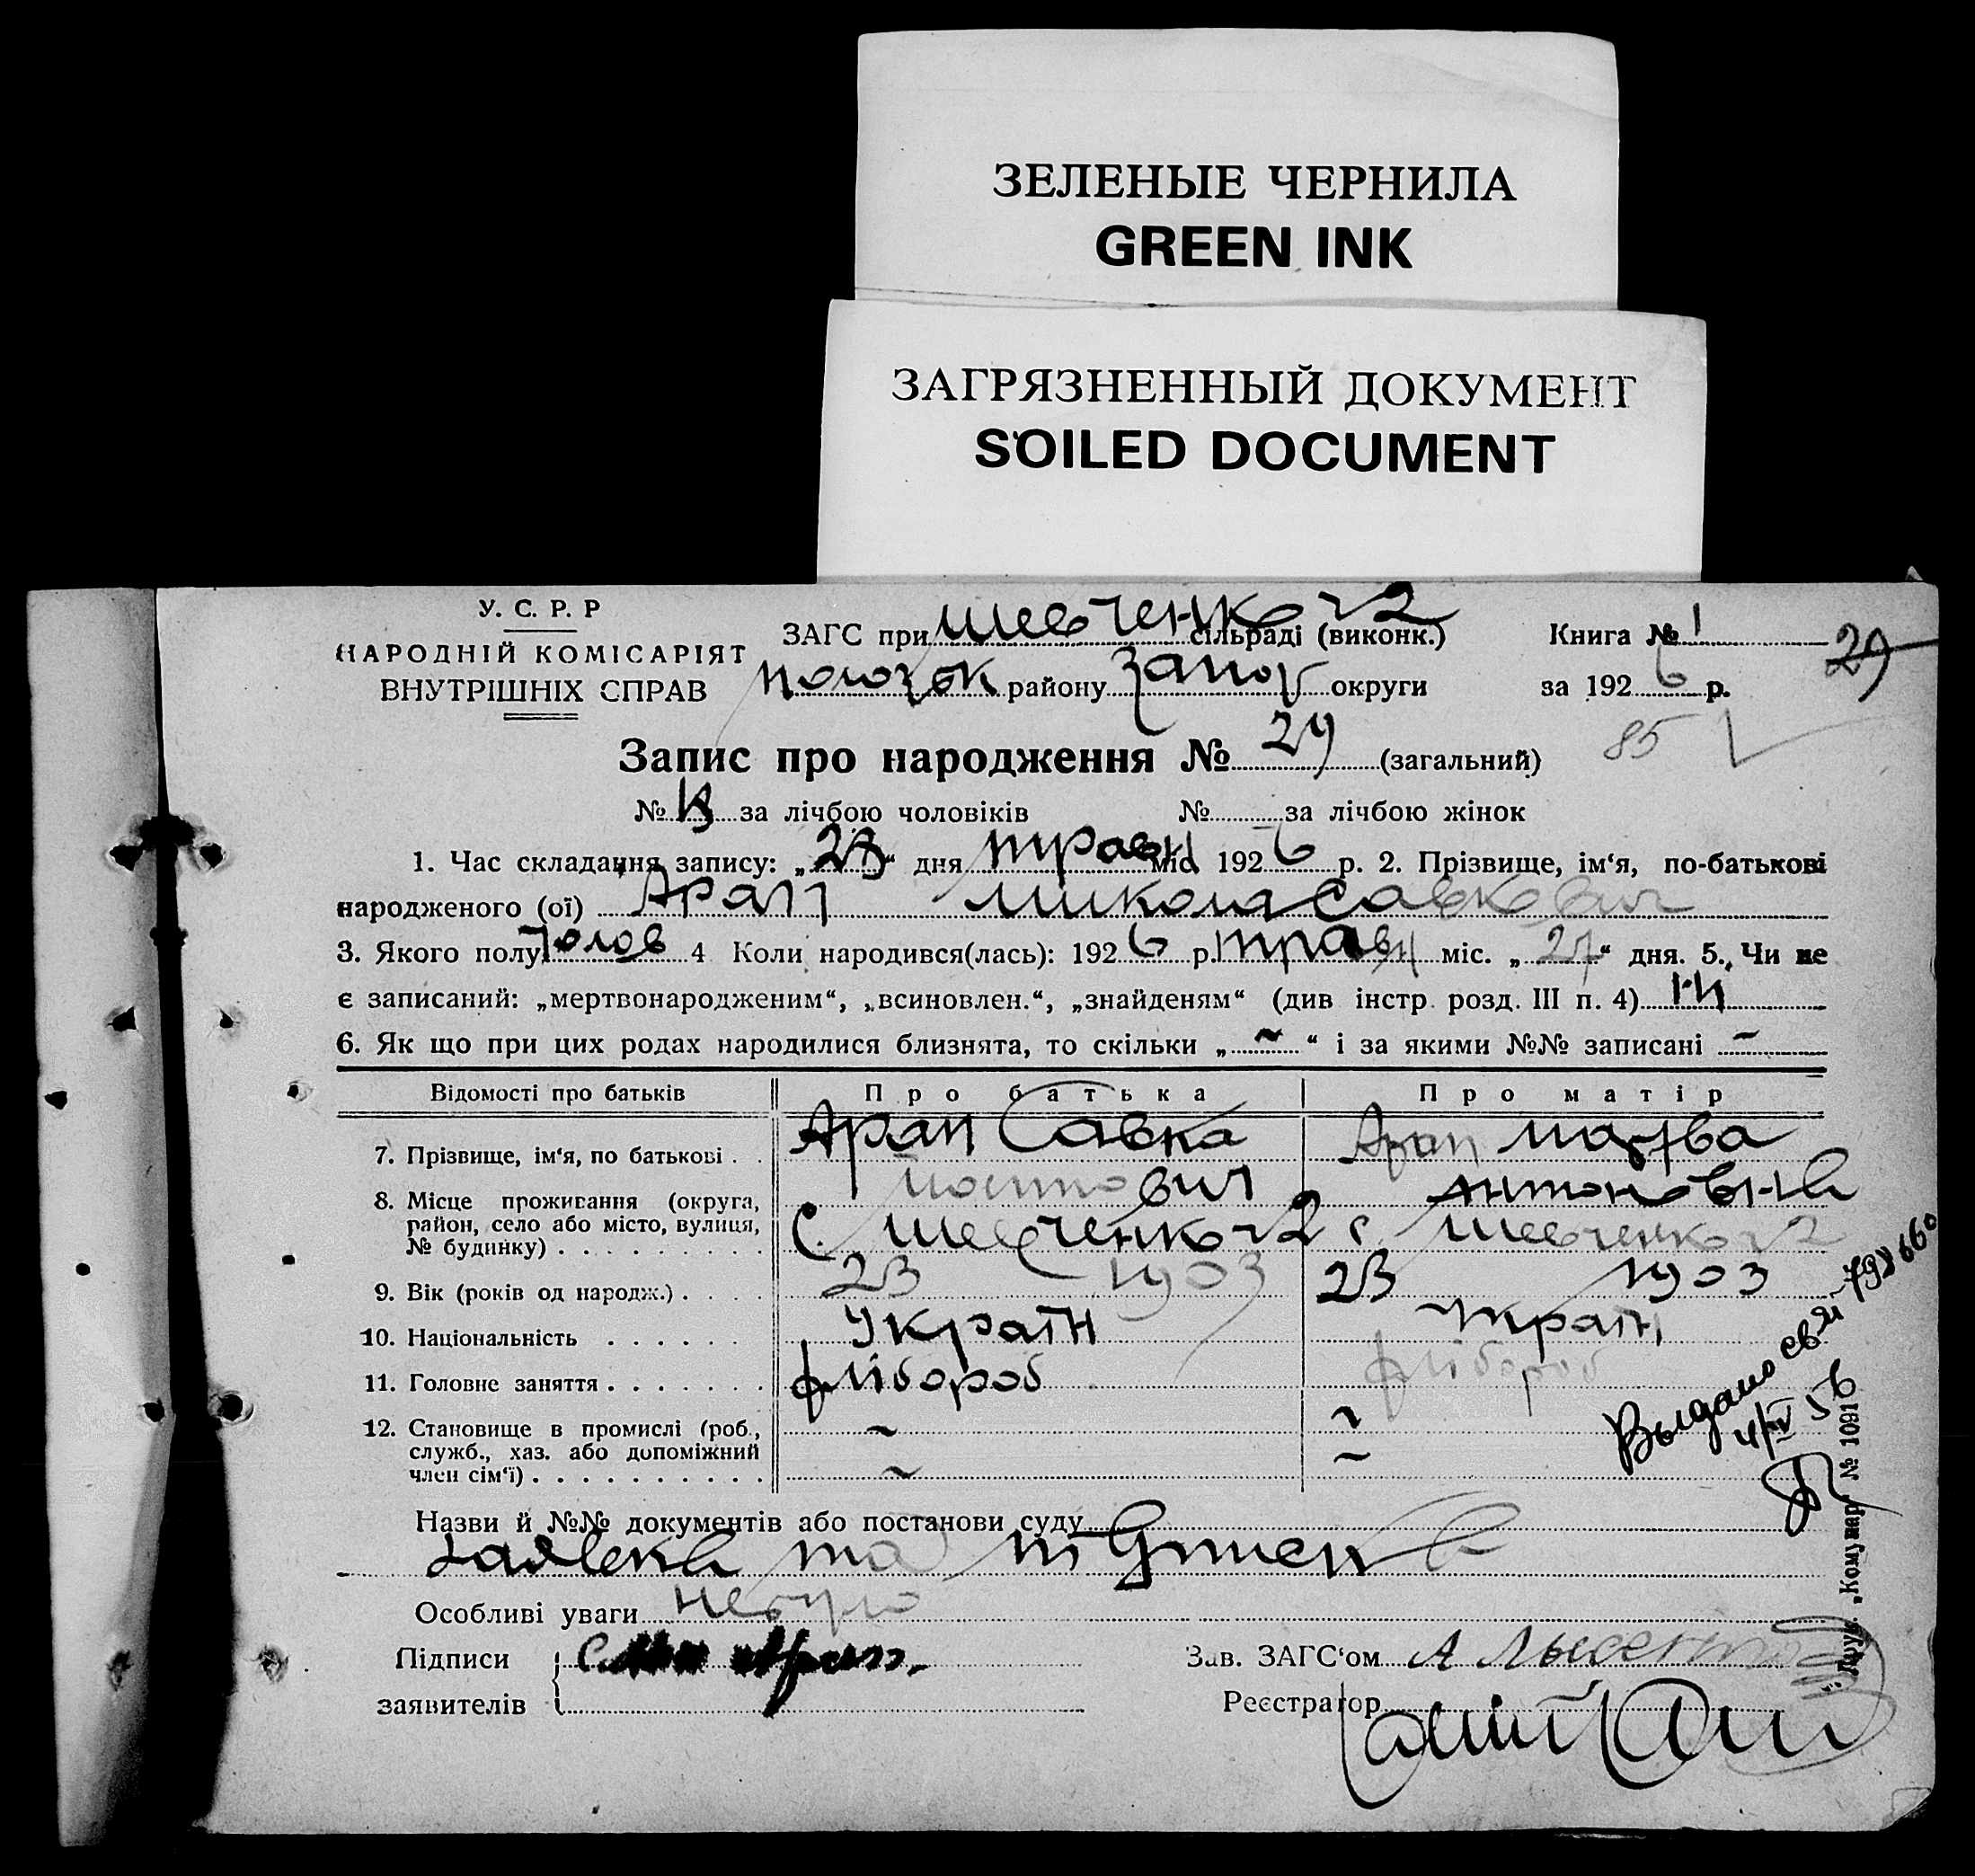 ЗЕЛЕНЫЕ ЧЕРНИЛА
GREEN INK
ЗАГРЯЗНЕННЫЙ ДОКУМЕНТ
SOILED DOCUMENT
У. С. Р. Р
НАРОДНІЙ КОМІСАРІЯТ
ВНУТРІШНІХ СПРАВ
ЗАГС при Шевченко № 2 сільраді (виконк.)
району Запор округи
Книга № 1
за 1926 р.
29
85
Запис про народження № 29 (загальний)
№ за лічбою чоловіків № за лічбою жінок
1. Час складання запису: „ “ дня трав міс 1926 р. 2. Прізвище, ім‘я, по-батькові
народженого (ої) Арап Микола Савкович
3. Якого полу Чолов 4 Коли народився(лась): 1926 р. травн міс. „27“ дня. 5. Чи не
є записаний: „мертвонародженим“, „всиновлен.“, „знайденям“ (див інстр. розд. III п. 4) ні
6. Як що при цих родах народилися близнята, то скільки „~“ і за якими №№ записані –
Відомості про батьків Про батька Про матір
7. Прізвище, ім‘я, по батькові . . Арап Савка Арап
ович Антоновна
8. Місце проживання (округа,
район, село або місто, вулиця,
№ будинку) . . . . . . . . . с. Шевченко № 2 с. Шевченко № 2
9. Вік (років од народж.) . . . . 23 1903 23 1903
10. Національність . . . . . . Україн Україн
11. Головне заняття . . . . . . . хлібороб хлібороб
12. Становище в промислі (роб.,
служб., хаз. або допоміжний
член сім‘ї) . . . . . . . . . . ~ ~
Выдано св
798660
4/IV 56
Назви й №№ документів або постанови суду
заявка та підписка
Особливі уваги небуло
Підписи
заявителів
Арап
Зав. ЗАГС‘ом А
Реєстратор
Друк. „Комунар“ № 1091